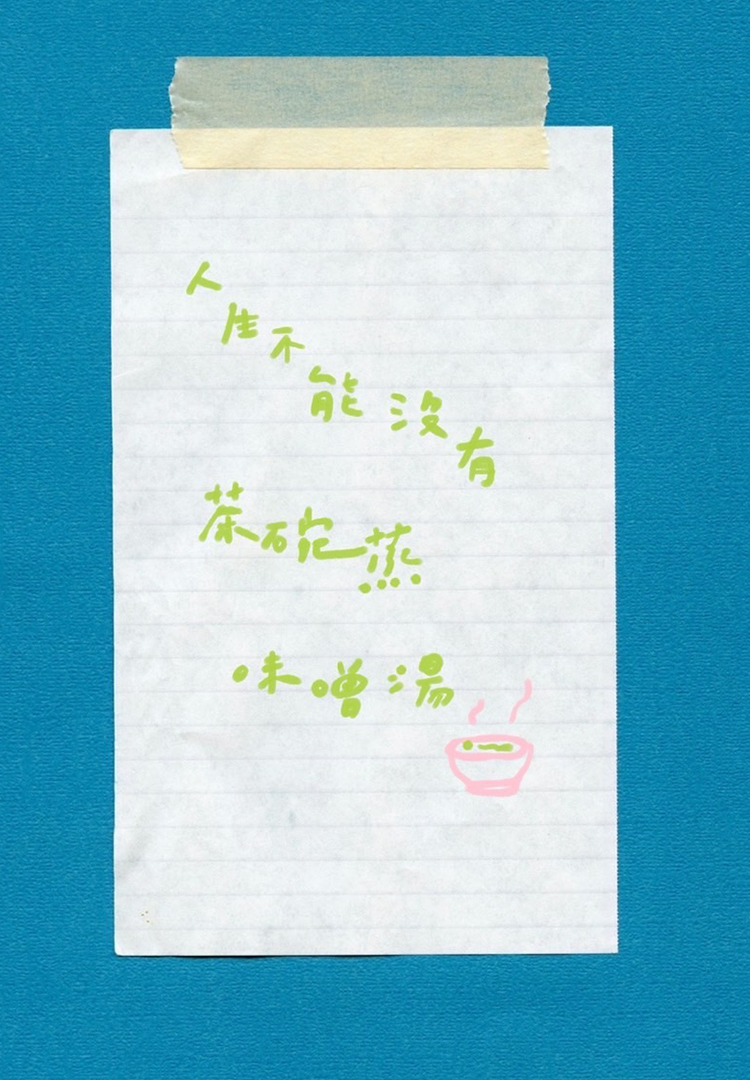 人生不能沒有
茶碗蒸
味噌湯